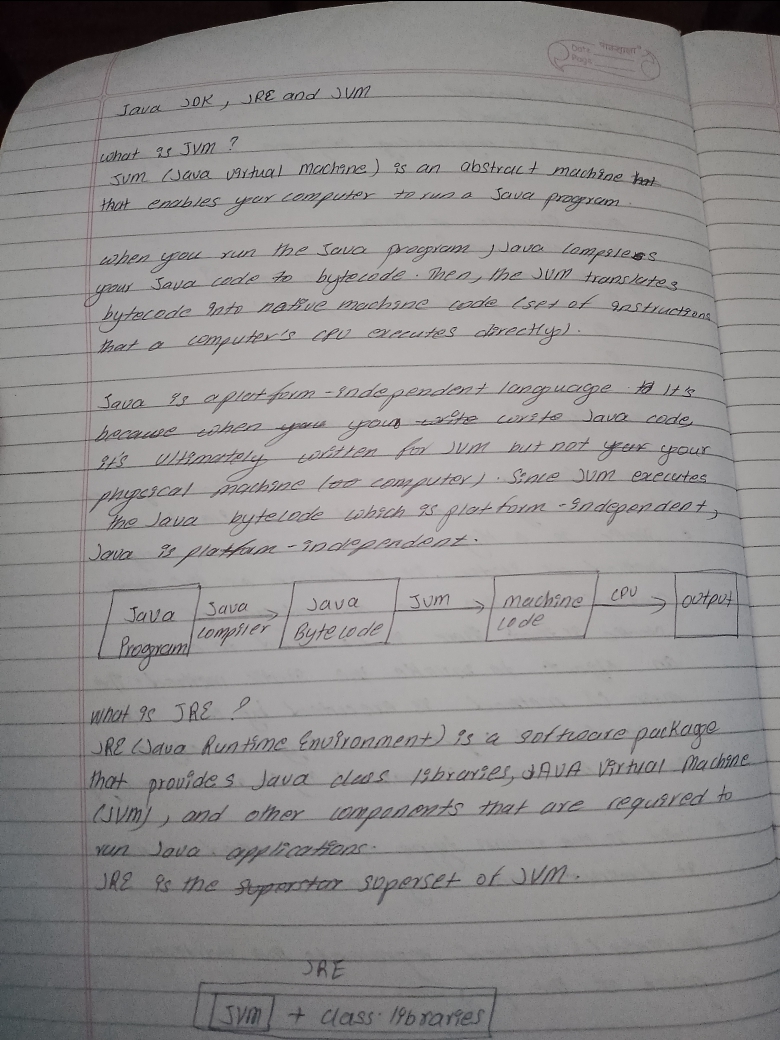 Date
Page
Java JDK, JRE and JVM
what is JVM ?
JVM (Java virtual machine) is an abstract machine that
that enables your computer to run a Java program.
when you run the Java program, Java compiles
your Java code to bytecode. Then, the JVM translates
bytecode into native machine code (set of instructions
that a computer's CPU executes directly).
Java is a platform-independent language It's
because when you your write write Java code,
it's Ultimately written for JVM but not your your
physical machine (or computer). Since JVM executes
the Java bytecode which is platform-independent,
Java is platform-independent.
Java Java Java JVM machine CPU output
Program compiler Bytecode code
what is JRE ?
JRE (Java Runtime Environment) is a software package
that provides Java class libraries, JAVA Virtual Machine
(JVM), and other components that are required to
run Java applications.
JRE is the superstar superset of JVM.
JRE
JVM + class libraries